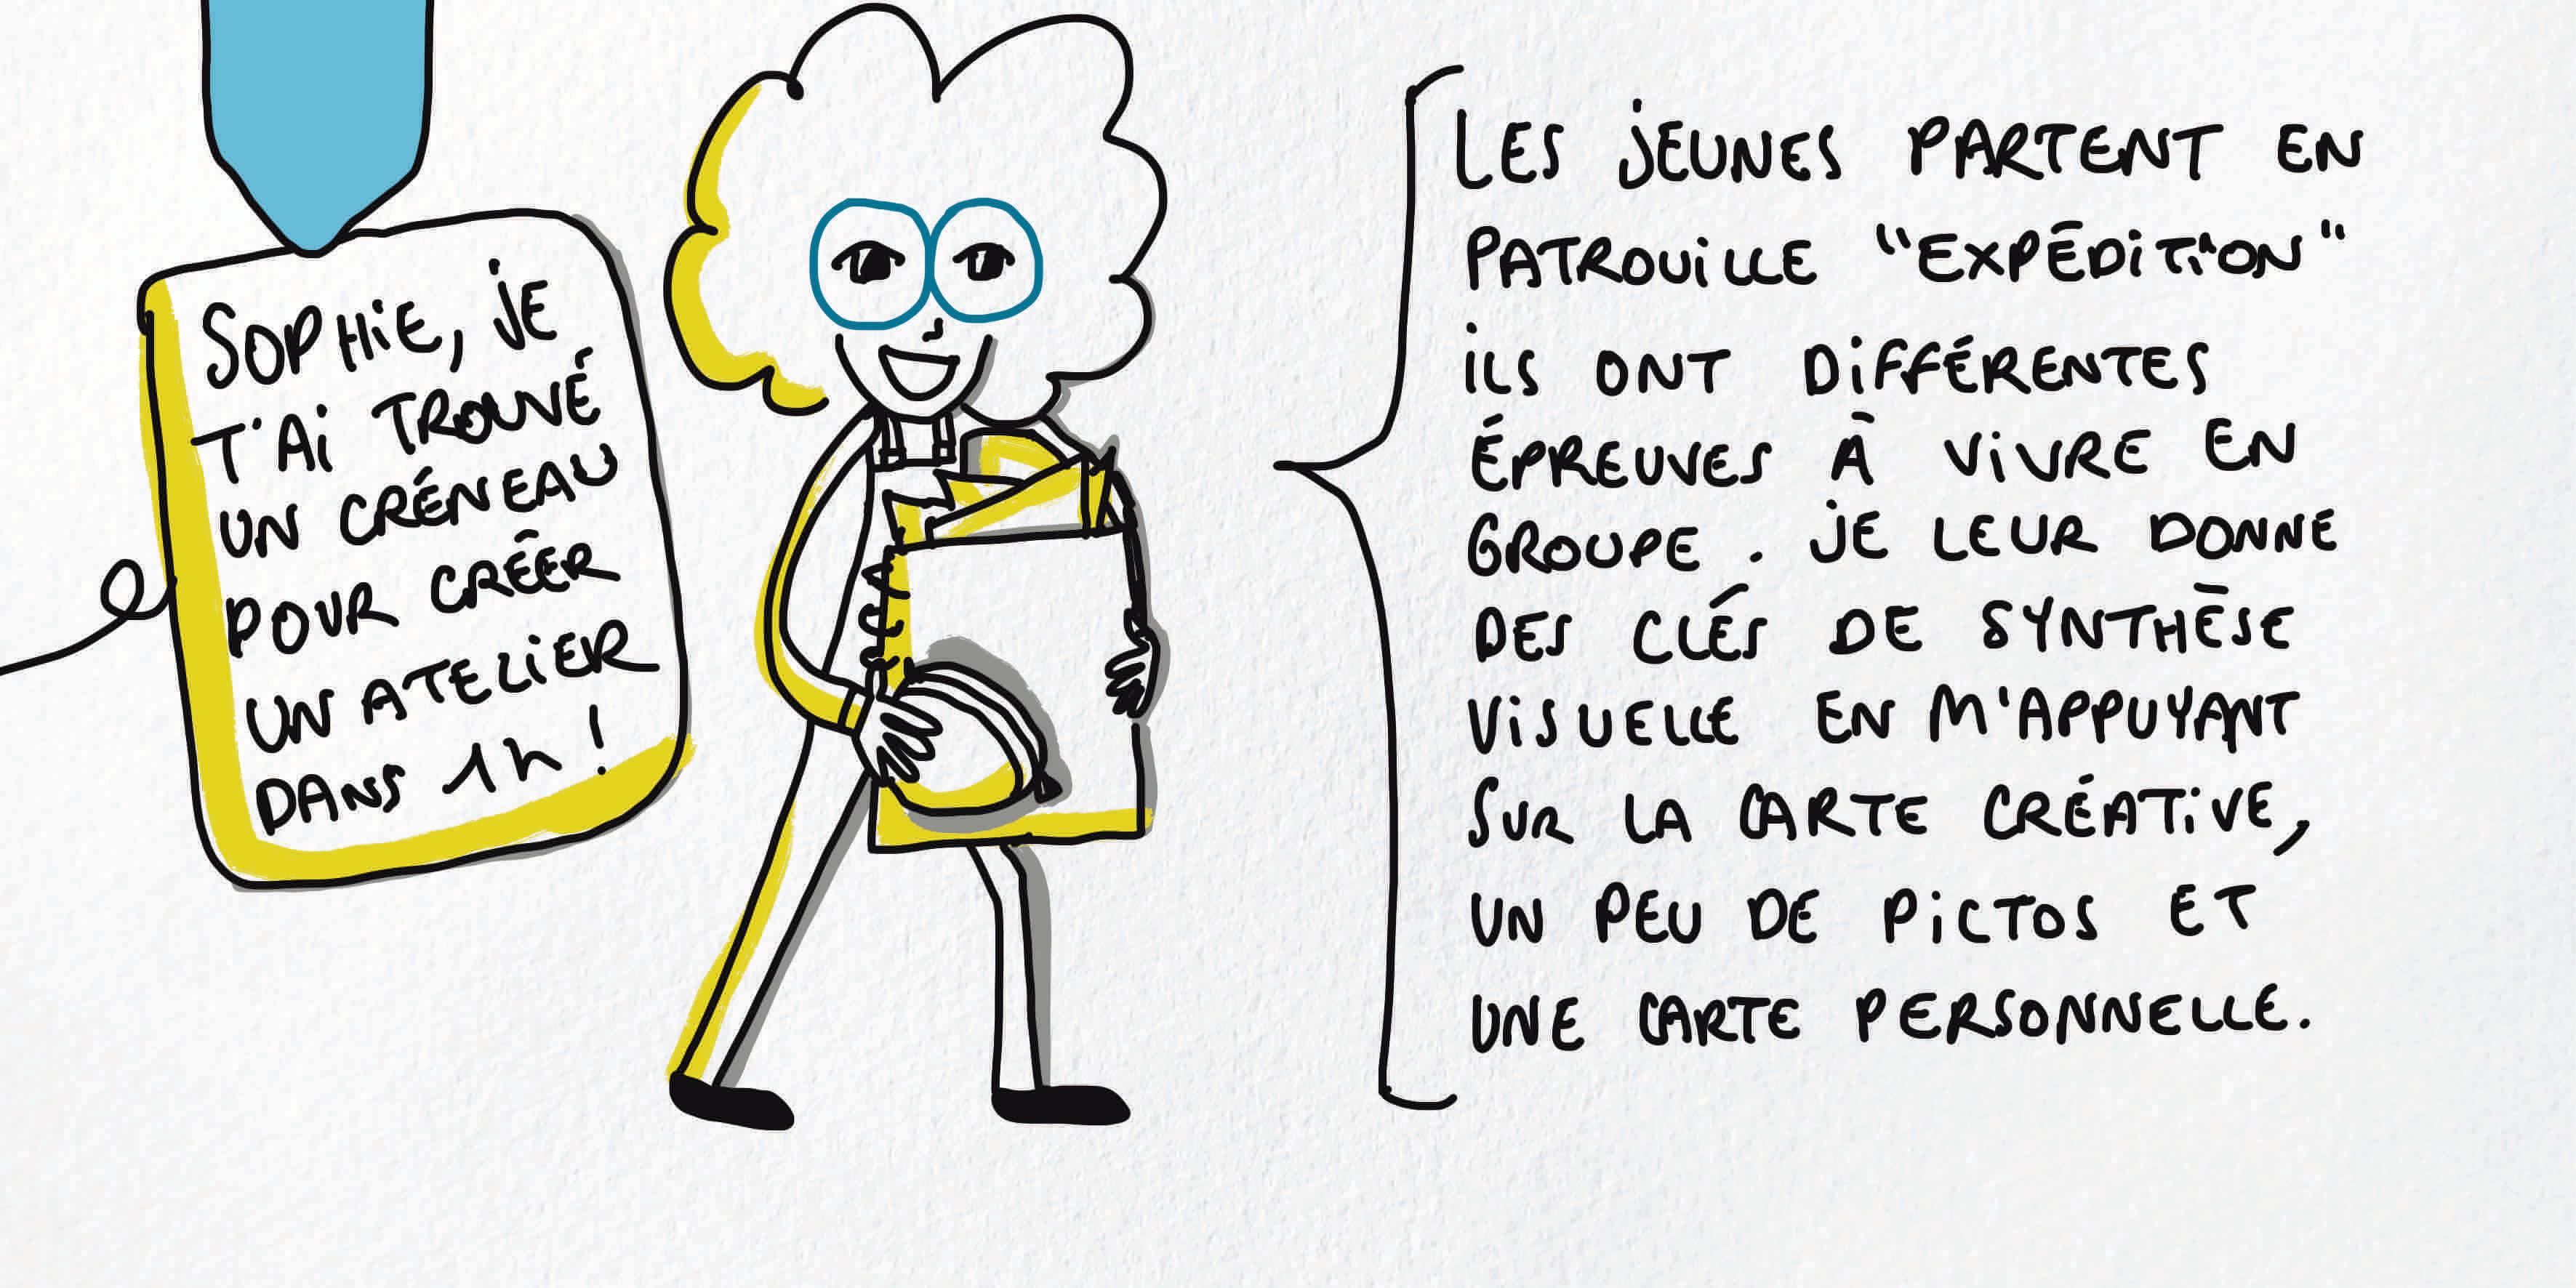 SOPHIE, JE
T'AI TROUVÉ
UN CRÉNEAU
POUR CRÉER
UN ATELIER
DANS 1h !
LES JEUNES PARTENT EN
PATROUILLE "EXPÉDITION"
ILS ONT DIFFÉRENTES
ÉPREUVES À VIVRE EN
GROUPE . JE LEUR DONNE
DES CLÉS DE SYNTHÈSE
VISUELLE EN M'APPUYANT
SUR LA CARTE CRÉATIVE,
UN PEU DE PICTOS ET
UNE CARTE PERSONNELLE.